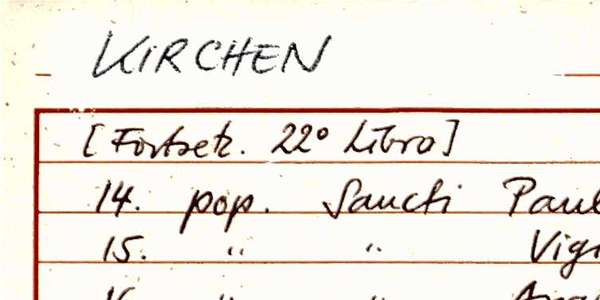 KIRCHEN
[Fortsetz. 22° Libro]
14. pop. Sancti
15. " "